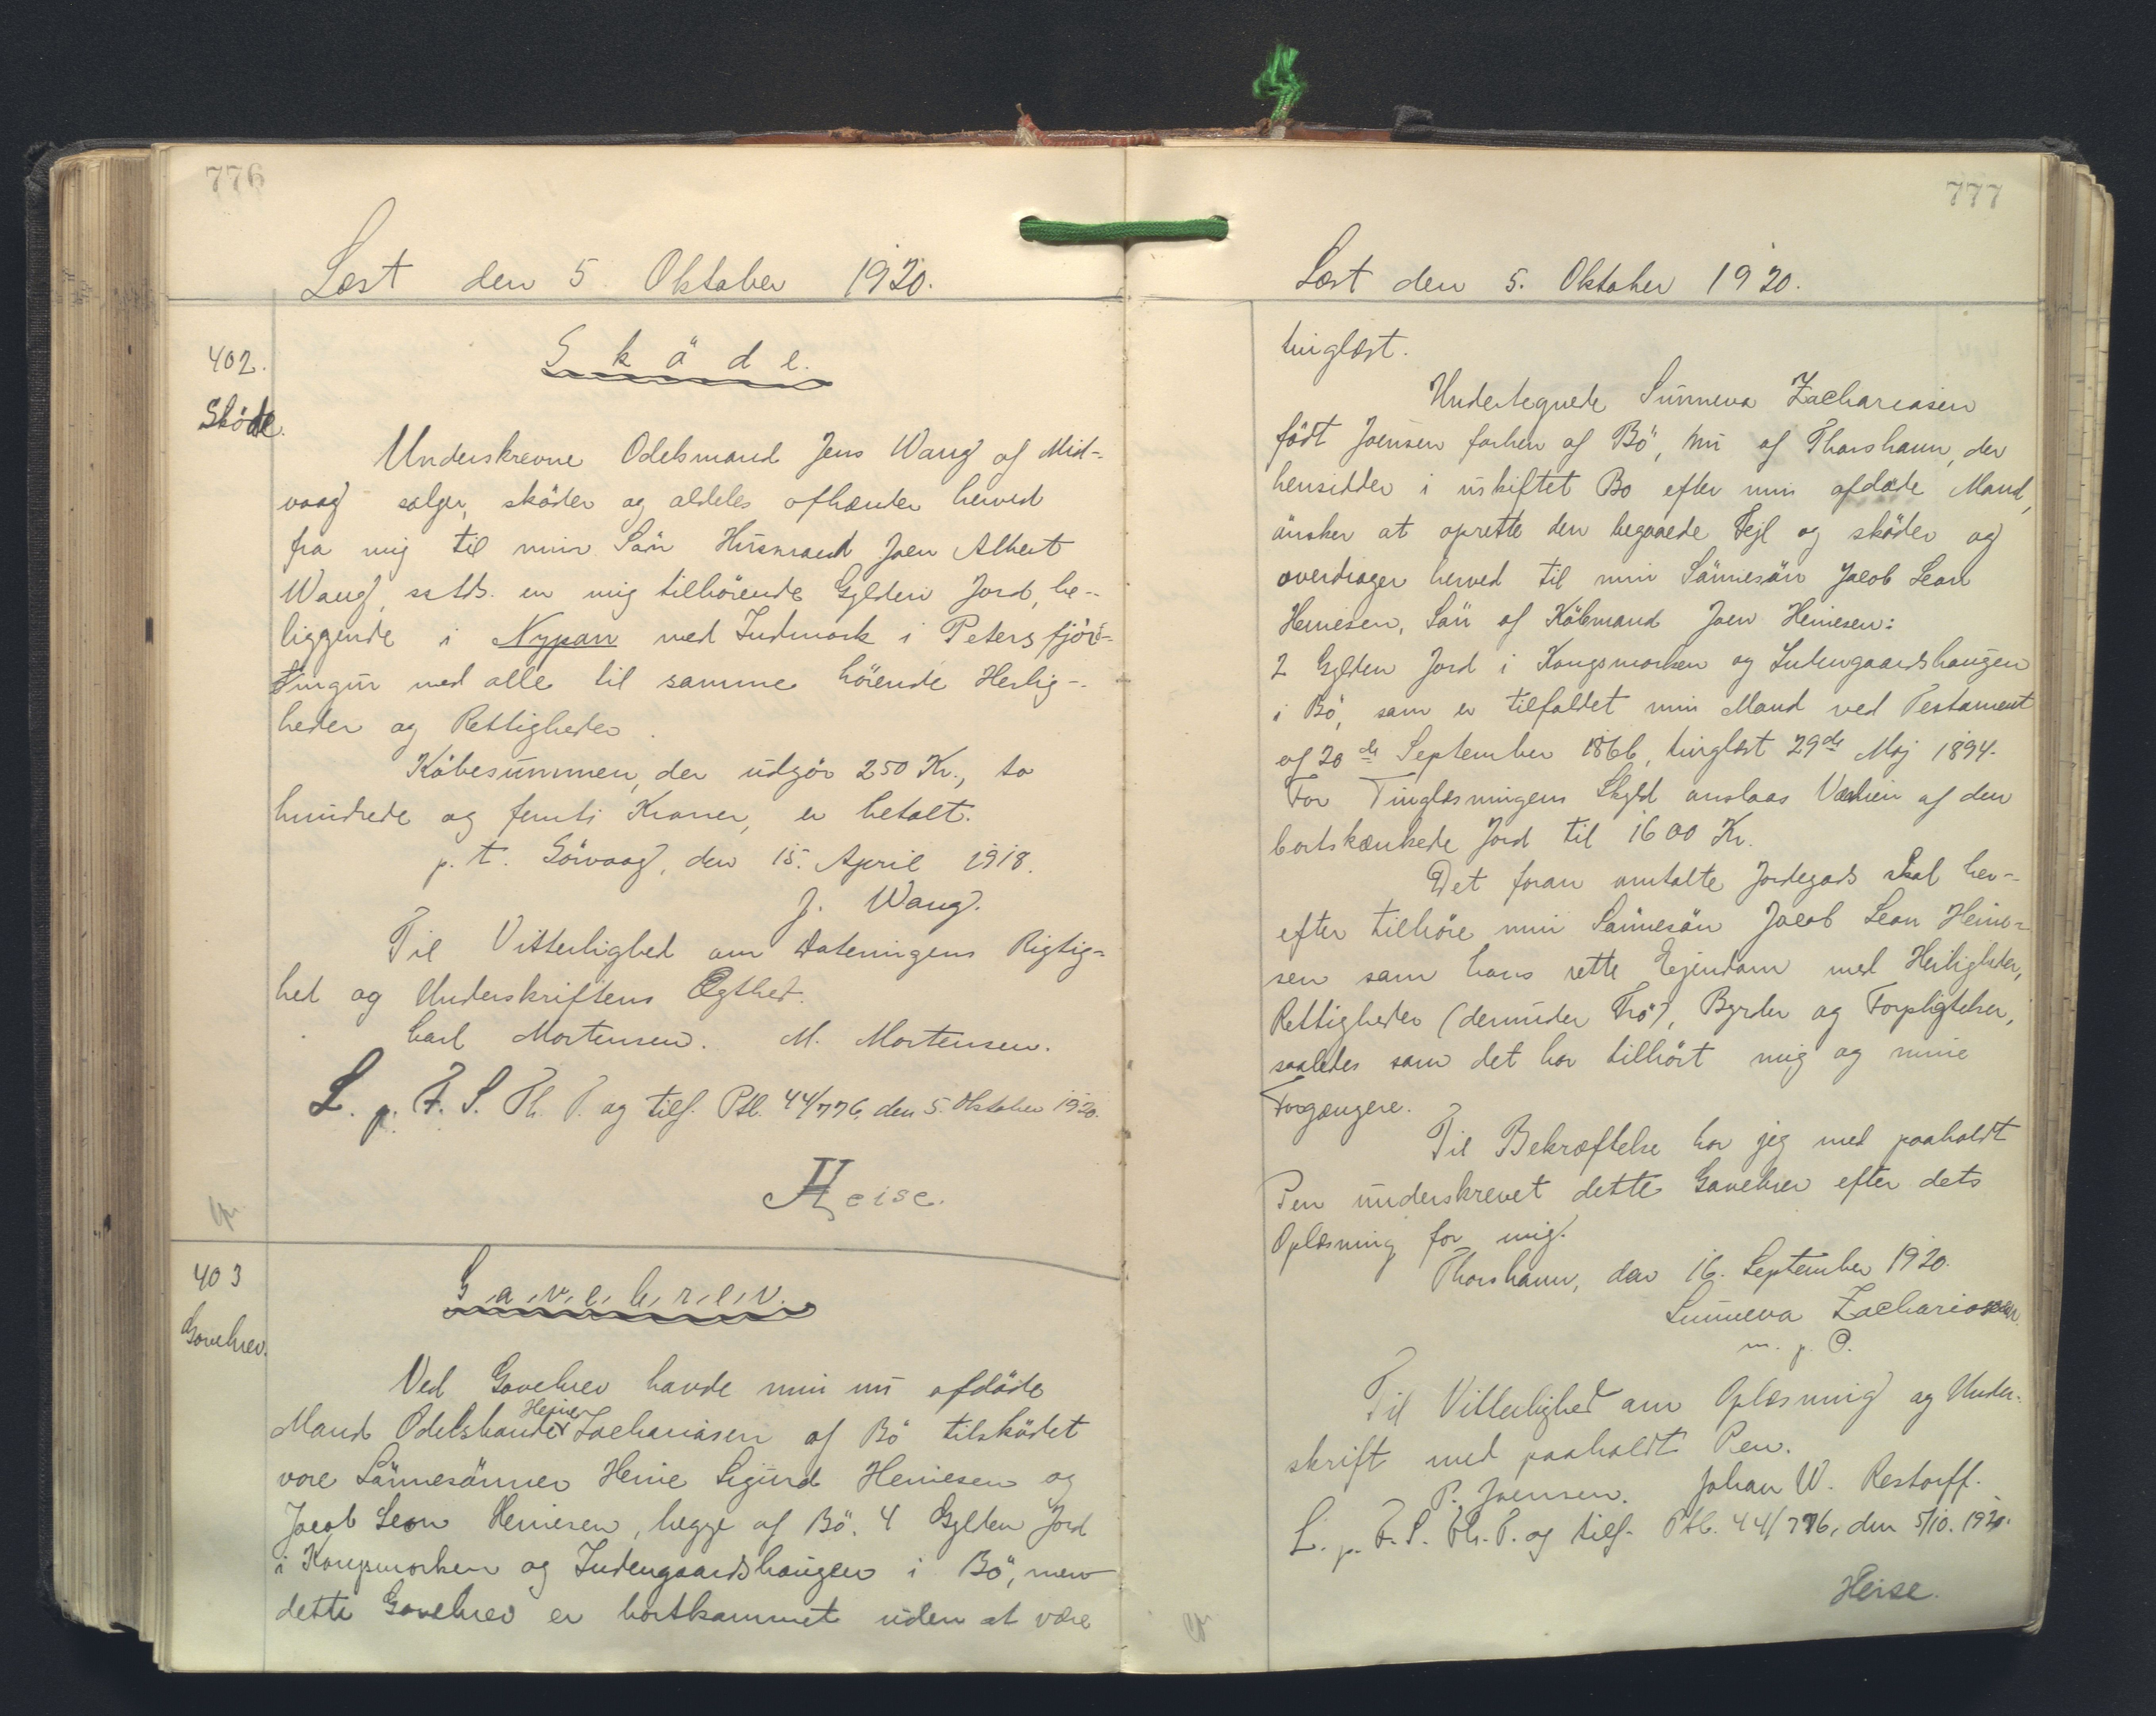 776
Læst den 5. Oktober 1920.
402.
Sköde.
Sköde.
Underskrevne Odelsmand Jens Wang af Mid-
vaag sælger, sköder og aldeles afhænder herved
fra mig til min Sön Husmand Joen Albert
Wang, sstds. en mig tilhörende Gylden Jord, be-
liggende i Nypan med Indmark i Petersfjör-
tingur med alle til samme hörende Herlig-
heder og Rettigheder.
Köbesummen, der udgör 250 Kr., to
hundrede og femti Kroner, er betalt.
p. t. Sörvaag, den 15. April 1918.
J. Wang.
Til Vitterlighed om Dateringens Rigtig-
hed og Underskriftens Ægthed.
Carl Mortensen. M. Mortensen.
L. p. F. S. Th. P. og tilf. Ptb. 44/776, den 5. Oktober 1920.
Heise.
403
Gavebrev.
Gavebrev.
Ved Gavebrev havde min nu afdöde
Heine
Mand Odelsbonde Zachariasen af Bö tilsködet
vore Sönnesönner Heine Sigurd Heinesen og
Jacob Leon Heinesen, begge af Bö. 4 Gylden Jord
i Kongsmorken og Indengaardshaugen i Bö, men
dette Gavebrev er bortkommet uden at være
777
Læst den 5. Oktober 1920.
tinglæst.
Undertegnede Sunneva Zachariasen
födt Joensen forhen af Bö, nu af Thorshavn, der
hensidder i uskiftet Bo efter min afdøde Mand,
önsker at oprette den begaaede Fejl og sköder og
overdrager herved til min Sönnesön Jacob Leon
Heinesen, Sön af Köbmand Joen Heinesen:
2 Gylden Jord i Kongsmorken og Indengaardshaugen
i Bö, som er tilfaldet min Mand ved Testament
af 20de September 1866, tinglæst 29de Maj 1894.
For Tinglæsningens Skyld anslaas Værdien af den
bortskænkede Jord til 1600 Kr.
Det foran omtalte Jordegods skal her-
efter tilhöre min Sönnesön Jacob Leon Heine-
sen som hans rette Ejendom med Herligheder,
Rettigheder (derunder Trö), Byrder og Forpligtelser,
saaledes som det har tilhört mig og mine
Forgængere.
Til Bekræftelse har jeg med paaholdt
Pen underskrevet dette Gavebrev efter dets
Oplæsning for mig.
Thorshavn, den 16. September 1920.
Sunneva Zachariasen.
m. p. P.
Til Vitterlighed om Oplæsning og Under-
skrift med paaholdt Pen.
P. Joensen. Johan W. Restorff.
L. p. F. S. Th. P. og tilf. Ptb. 44/776, den 5/10. 1920.
Heise.